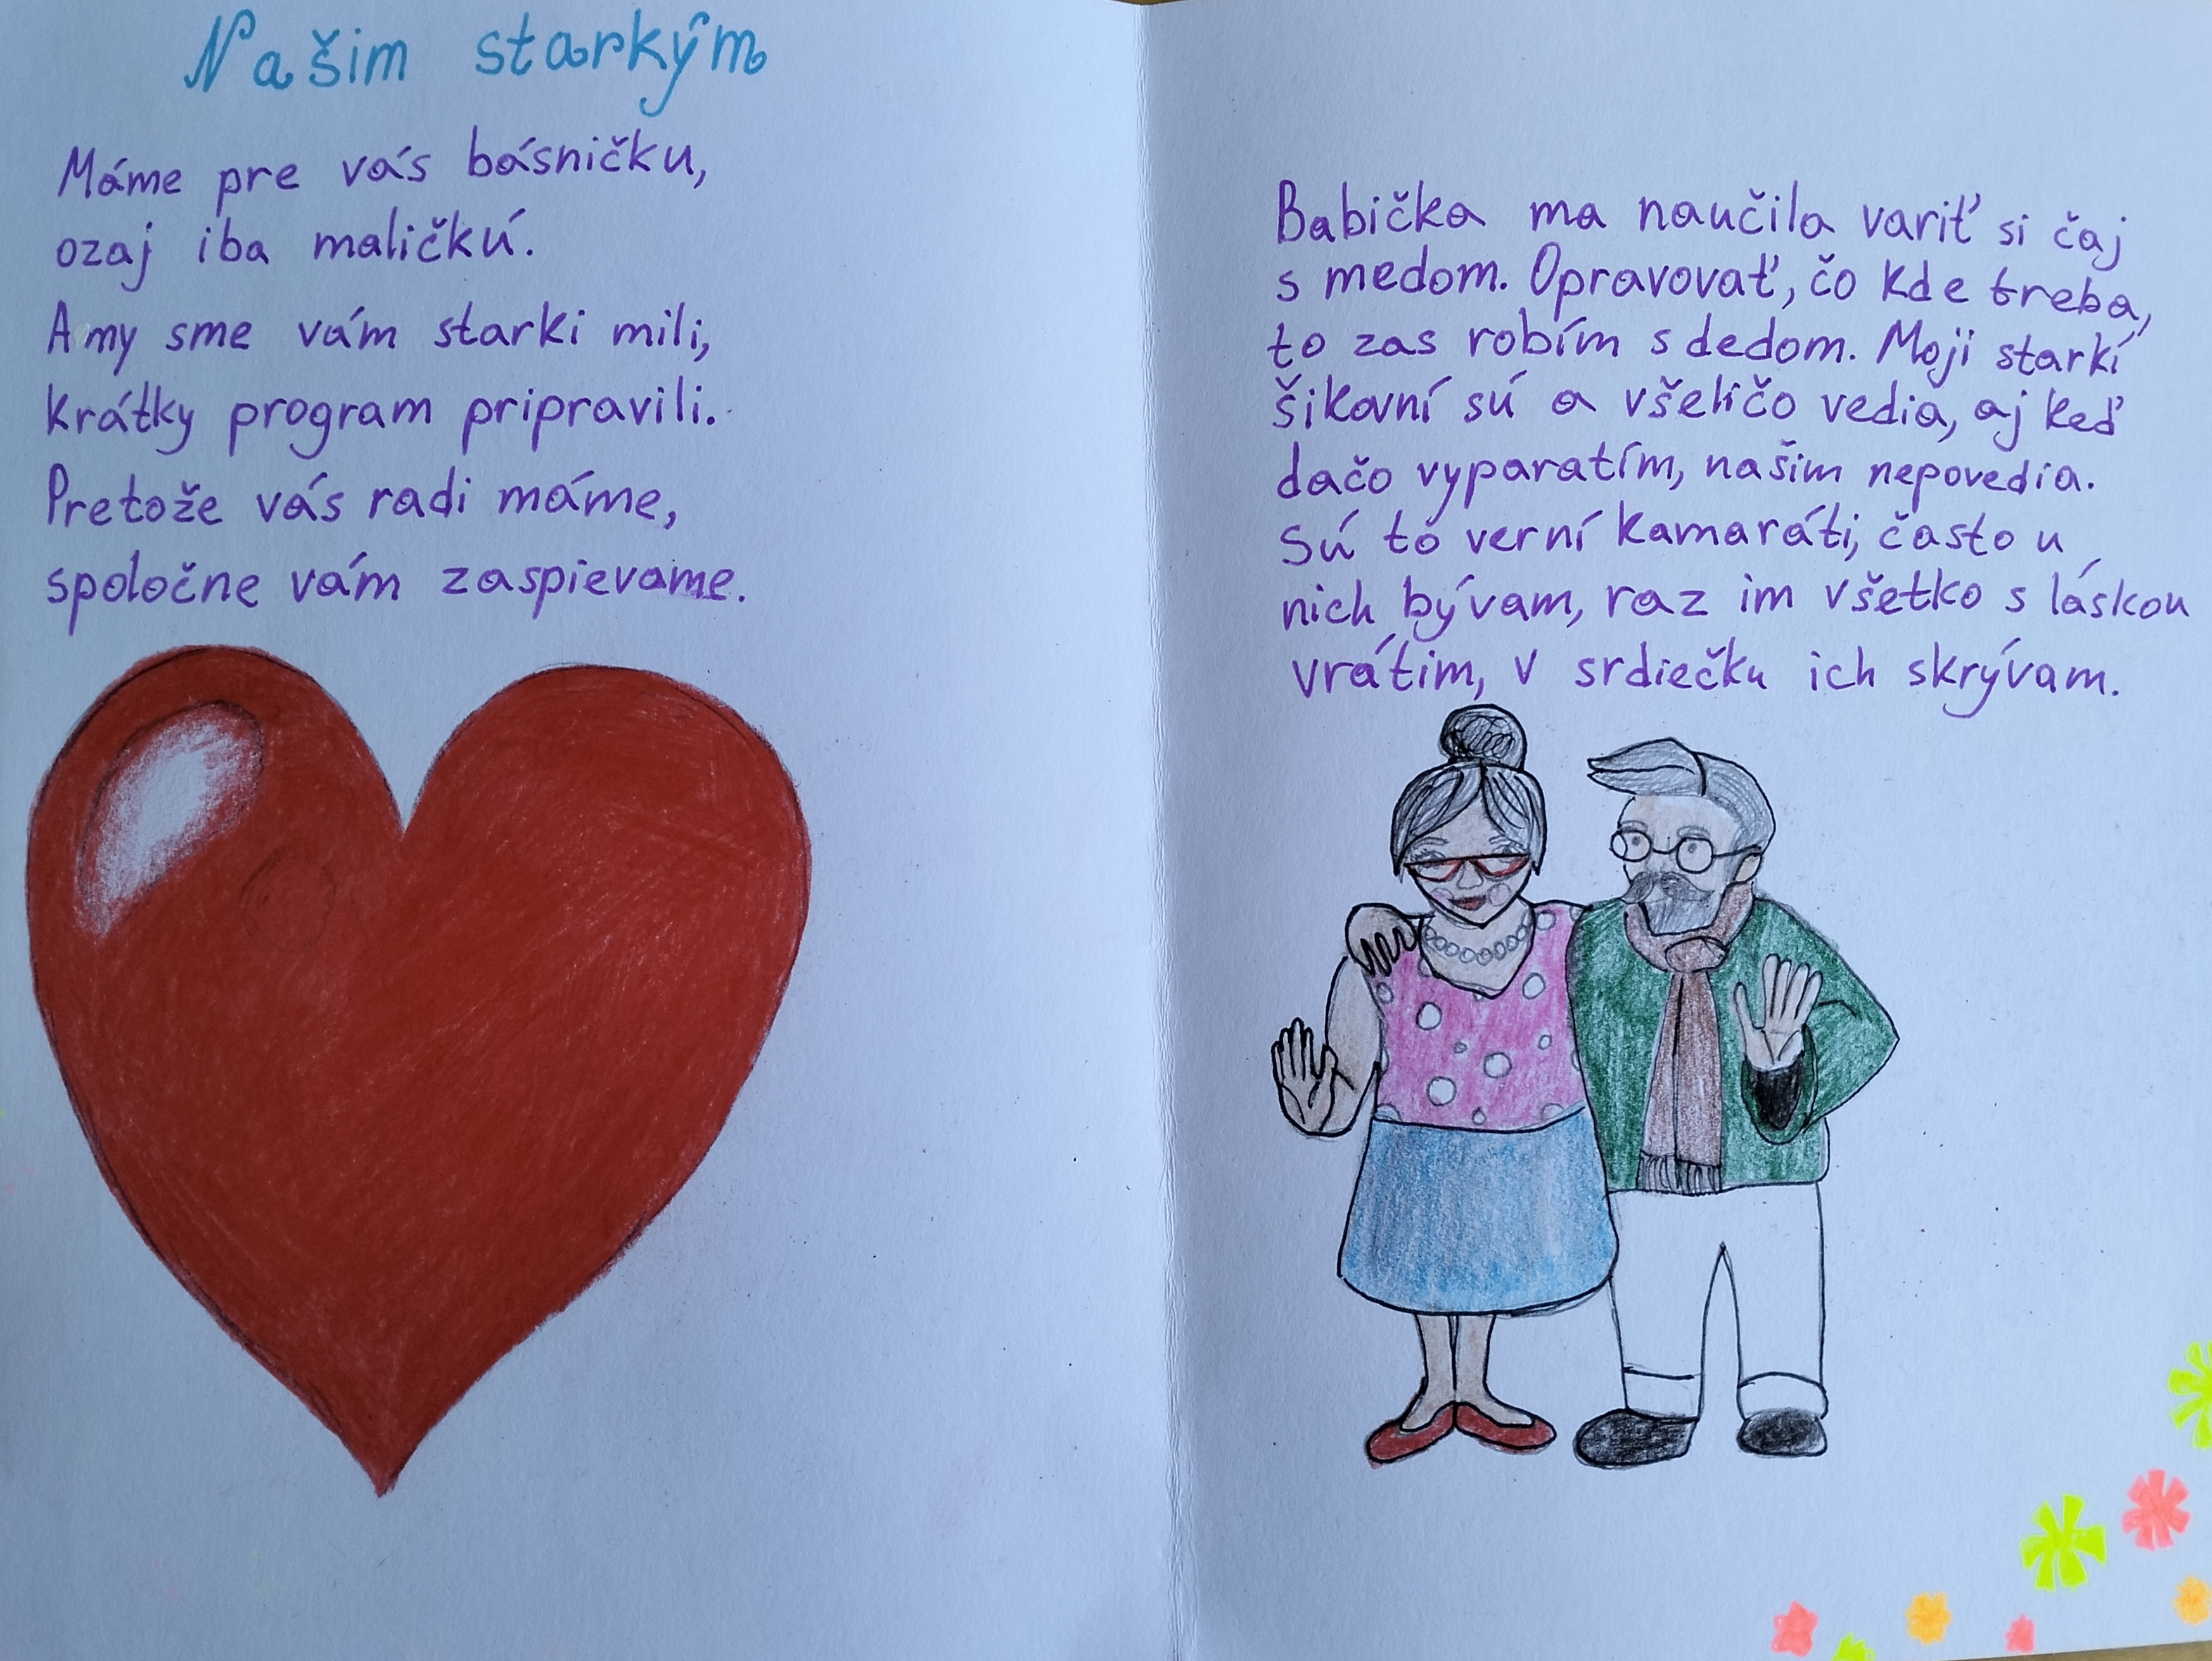 Našim starkým
Máme pre vás básničku,
ozaj iba maličkú.
A my sme vám starki mili,
krátky program pripravili.
Pretože vás radi máme,
spoločne vám zaspievame.
Babička ma naučila variť si čaj
s medom. Opravovať, čo kde treba,
to zas robím s dedom. Moji starkí
šikovní sú a všeličo vedia, aj keď
dačo vyparatím, našim nepovedia.
Sú to verní kamaráti, často u
nich bývam, raz im všetko s láskou
vrátim, v srdiečku ich skrývam.